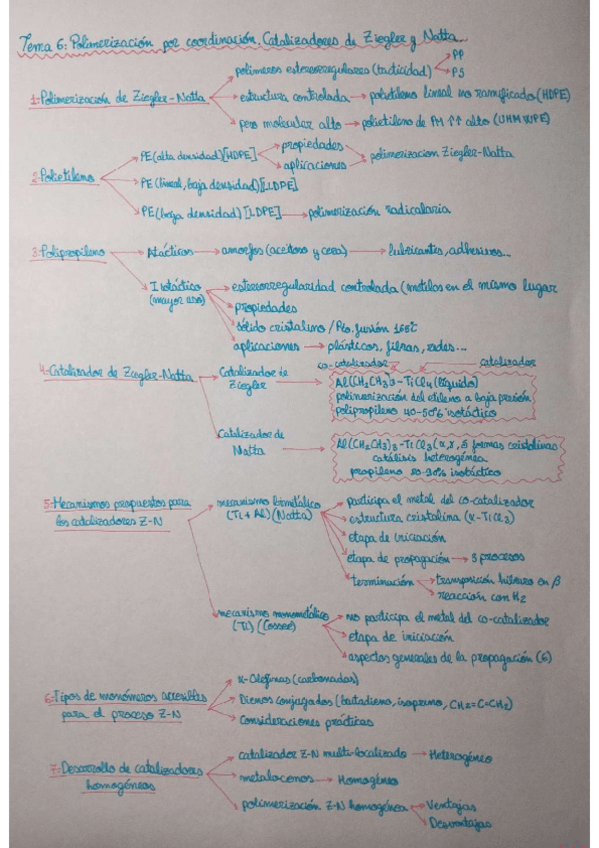 Tema 6: Polimerización por coordinación. Catalizadores de Ziegler y Natta...
1-Polimerización de Ziegler-Natta
polímeros estereorregulares (tacticidad)
PP
PS
estructura controlada
polietileno lineal no ramificado (HDPE)
peso molecular alto
polietileno de PM ↑↑ alto (UHMWPE)
2-Polietileno
PE (alta densidad) [HDPE]
propiedades
aplicaciones
polimerización Ziegler-Natta
PE (lineal, baja densidad) [LLDPE]
PE (baja densidad) [LDPE]
polimerización radicalaria
3-Polipropileno
Atácticos
amorfos (aceitoso y cera)
lubricantes, adhesivos...
Isotáctico
(mayor uso)
estereorregularidad controlada (metilos en el mismo lugar
propiedades
sólido cristalino / Pto. fusión 165ºC
aplicaciones
plásticos, fibras, redes...
4-Catalizador de Ziegler-Natta
Catalizador de
Ziegler
co-catalizador
catalizador
Al(CH2CH3)3-TiCl4 (líquido)
polimerización del etileno a baja presión
polipropileno 40-50% isotáctico
Catalizador de
Natta
Al(CH2CH3)3-TiCl3 (α, γ, δ formas cristalinas
catálisis heterogénea
propileno 80-90% isotáctico
5-Mecanismos propuestos para
los catalizadores Z-N
mecanismo bimetálico
(Ti+Al) (Natta)
participa el metal del co-catalizador
estructura cristalina (α-TiCl3)
etapa de iniciación
etapa de propagación
3 procesos
terminación
transposición hidruro en β
reacción con H2
mecanismo monometálico
(Ti) (Cossee)
no participa el metal del co-catalizador
etapa de iniciación
aspectos generales de la propagación (6)
6-Tipos de monómeros accesibles
para el proceso Z-N
α-Olefinas (carbonadas)
Dienos conjugados (butadieno, isopreno, CH2=C=CH2)
Consideraciones prácticas
7-Desarrollo de catalizadores
homogéneos
catalizador Z-N multi-localizado
Heterogéneo
metalocenos
Homogéneo
polimerización Z-N homogénea
Ventajas
Desventajas